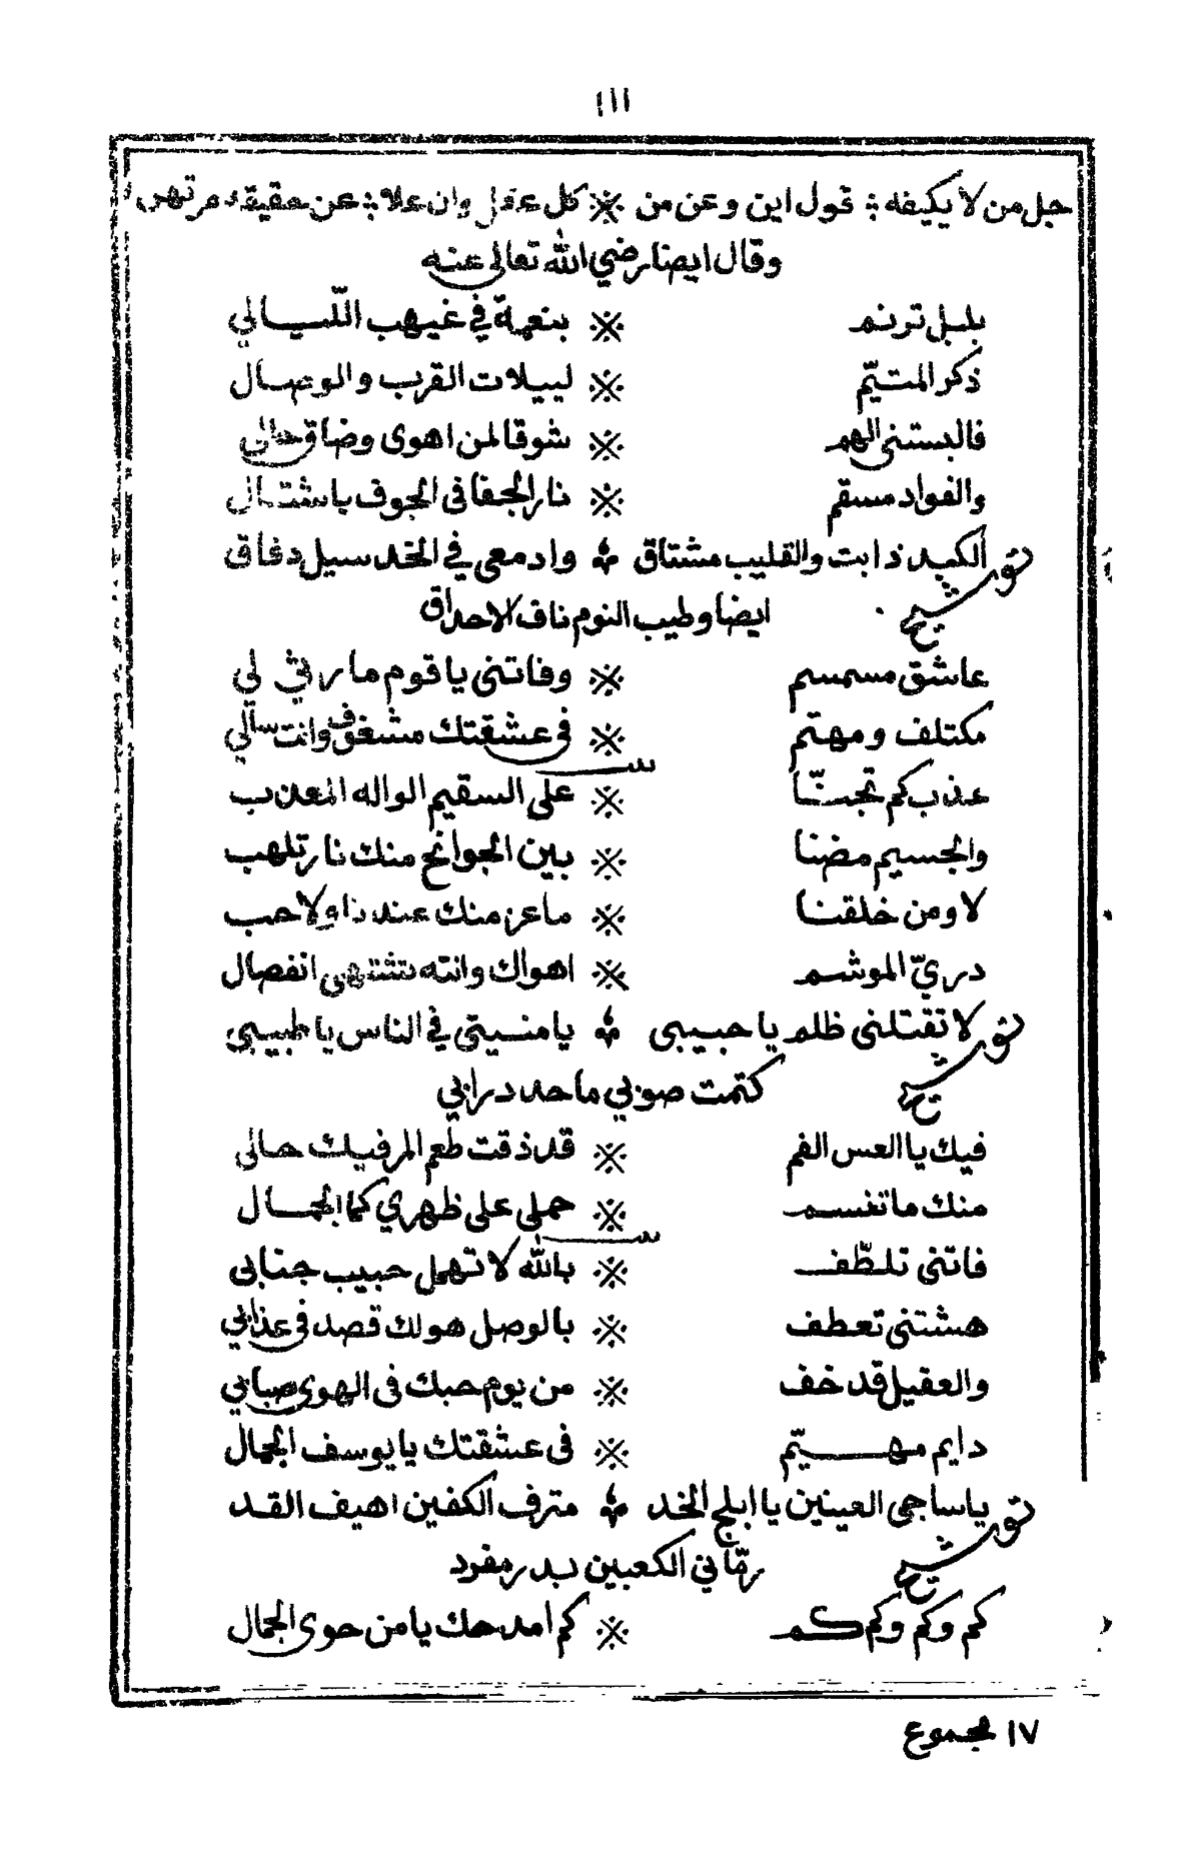 ١١١
جل من لا يكيفه ؛ قول اين وعن من ※ كل عقل وان علا ؛ عن حقيقه مرتهن
وقال ايضا رضي الله تعالى عنه
بلبل ترنم ※ بنغمة في غيهب اللّيالي
ذكر المتيّم ※ لييلات القرب والوصال
فالبستني الهم ※ شوقا لمن اهوى وضاق حالي
والفواد مسقم ※ نار الجفا في الجوف باشتال
توشيح الكبد ذابت والقليب مشتاق ؛ وادمعي في الخد سيل دفاق
ايضا وطيب النوم ناف الاحداق
عاشق مسمسم ※ وفاتني يا قوم ما رثى لي
مكتلف ومهتم ※ في عشقتك مشغوف وانت سالي
عذب كم تجنّا ※ على السقيم الواله المعذب
والجسيم مضنا ※ بين الجوانح منك نار تلهب
لا ومن خلقنا ※ ما عز منك عندنا ولا حب
دريّ الموشم ※ اهواك وانته تشتهي انفصال
توشيح لا تقتلني ظلم يا حبيبي ؛ يا منيتي في الناس يا طبيبي
كتمت صوبي ما حد درابي
فيك يا العس الفم ※ قد ذقت طعم المر فيك حالي
منك ما تفسم ※ حملي على ظهري كما الجبال
فاتني تلطّف ※ بالله لا تهمل حبيب جنابي
هشتني تعطف ※ بالوصل هو لك قصد في عذابي
والعقيل قد خف ※ من يوم حبك في الهوى صبابي
دايم مهيّم ※ في عشقتك يا يوسف الجمال
توشيح يا ساجي العينين يا ابلج الخد ؛ مترف الكفين اهيف القد
رمّاني الكعبين بدر مفرد
كم وكم وكم كم ※ كم امدحك يا من حوى الجمال
١٧ مجموع